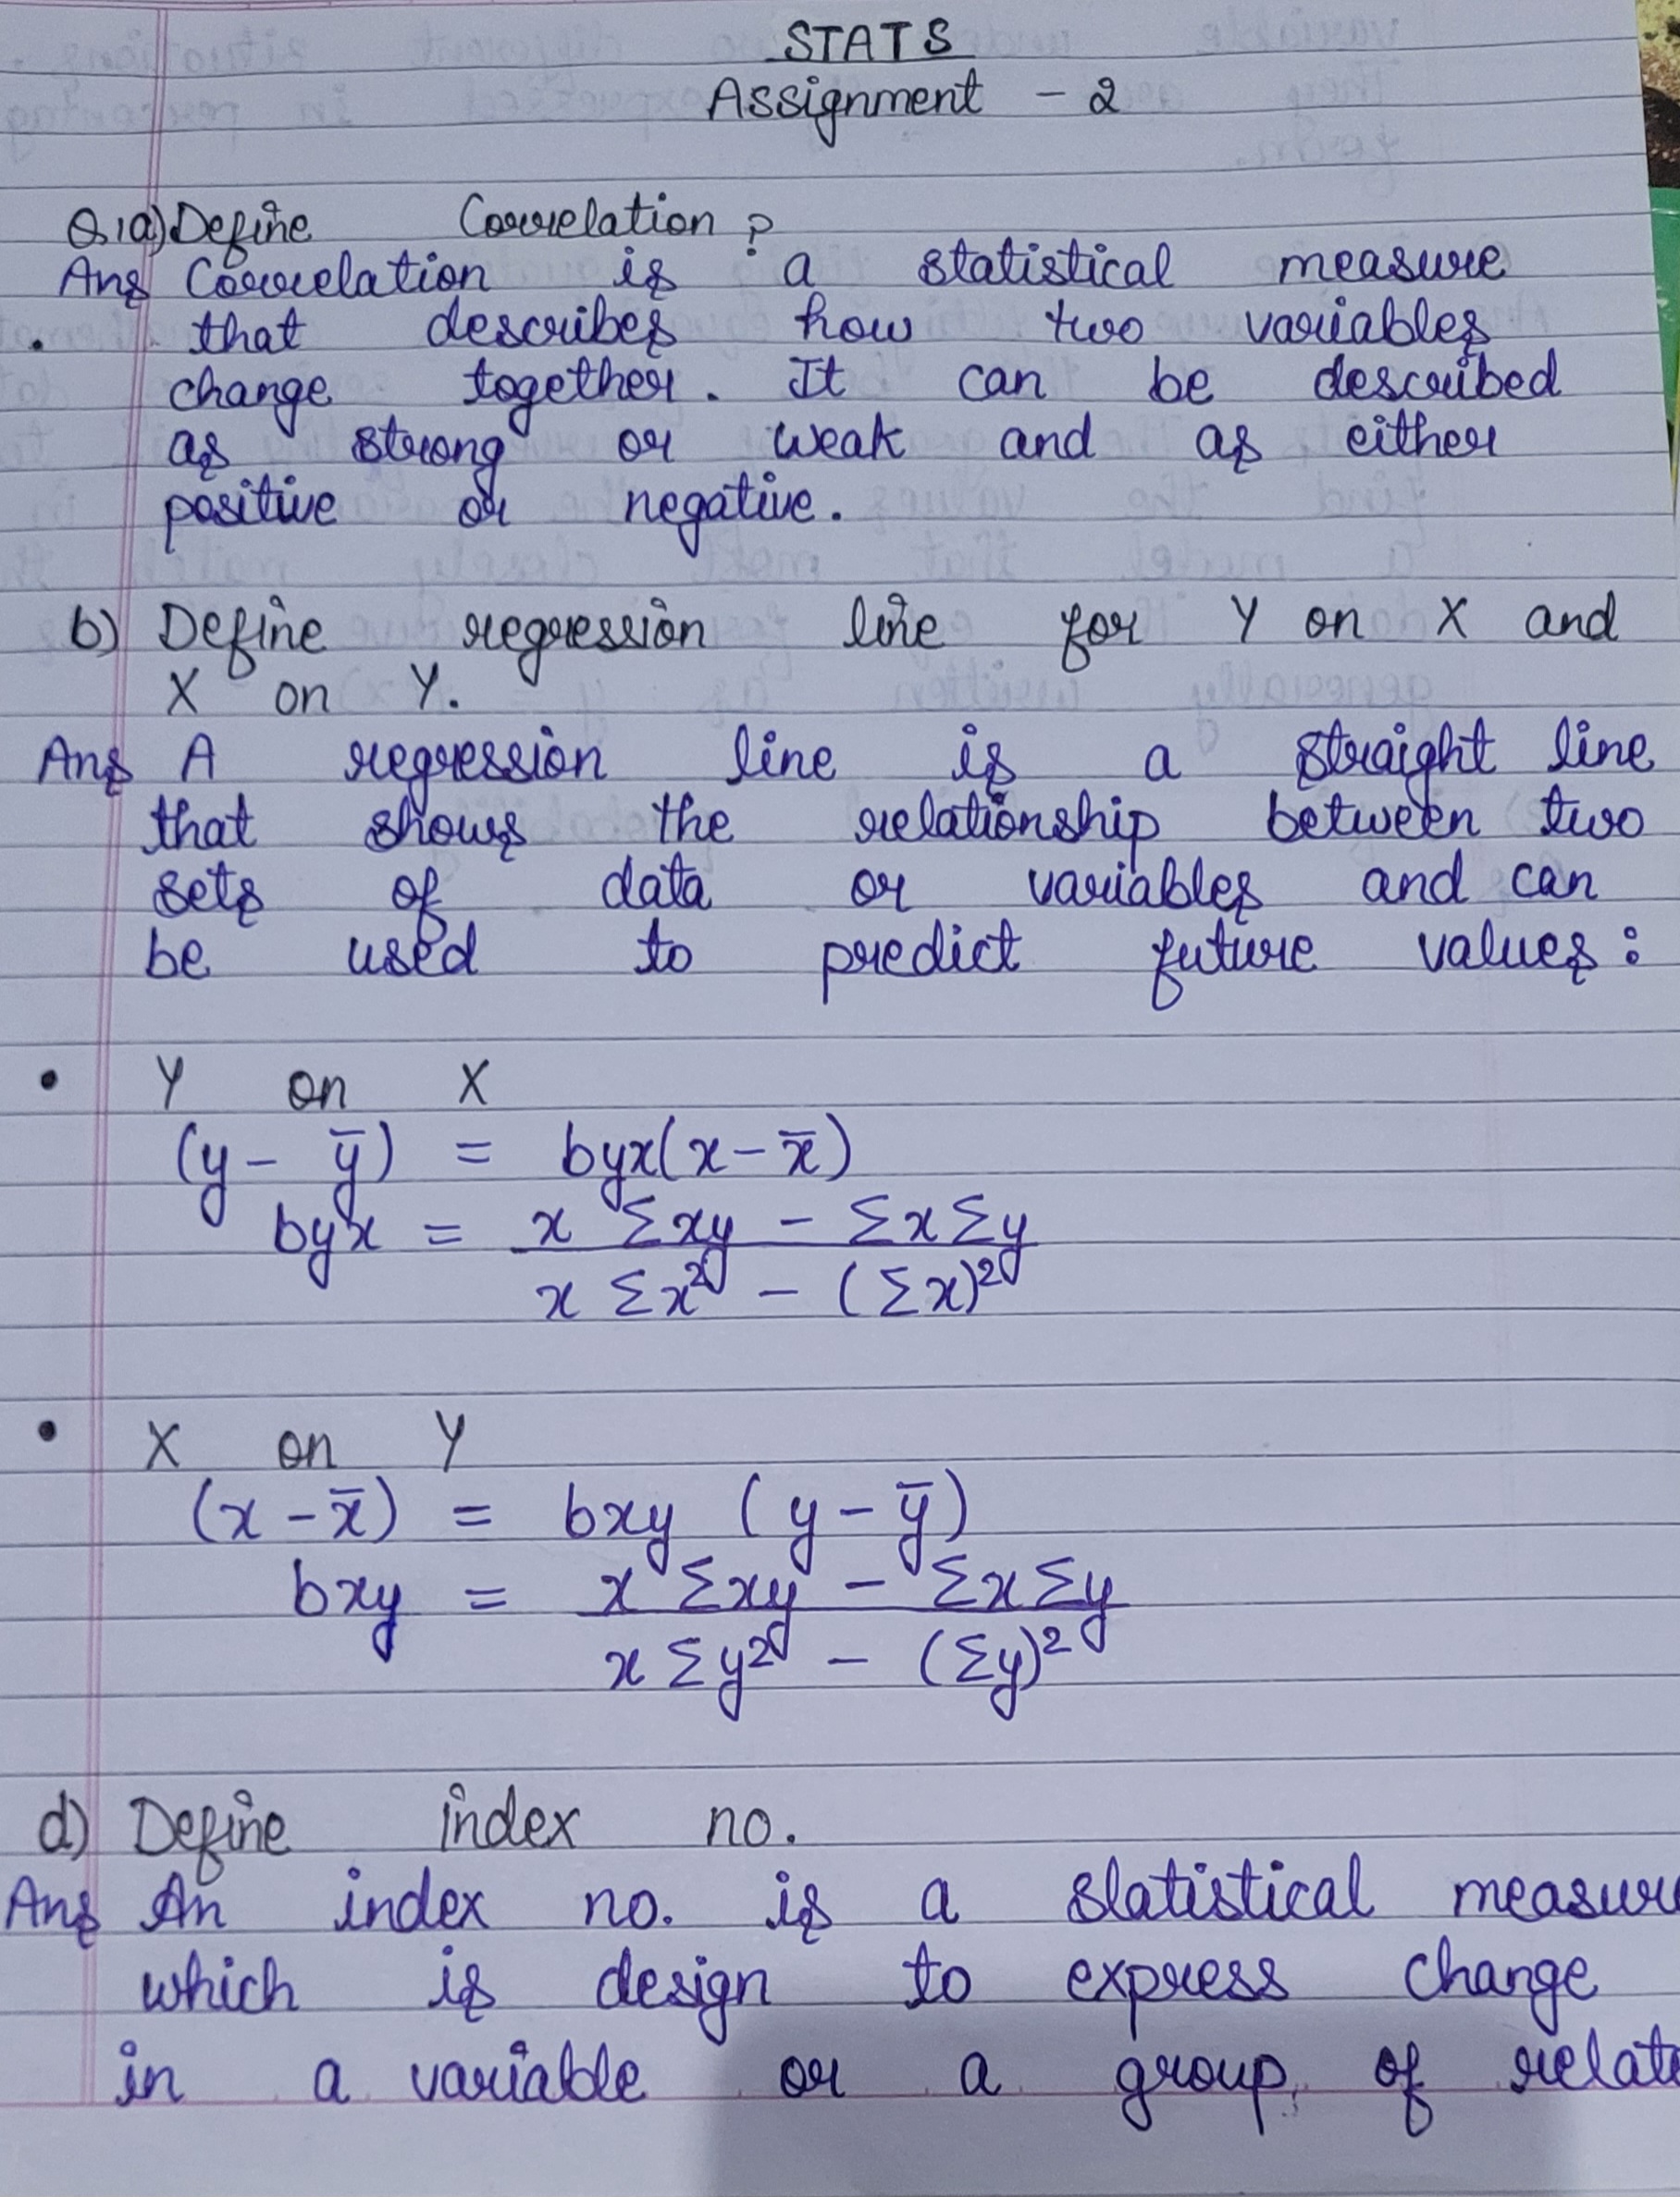 STATS
Assignment - 2
Q.1a) Define Correlation?
Ans Correlation is a statistical measure
that describes how two variables
change together. It can be described
as strong or weak and as either
positive or negative.
b) Define regression line for Y on X and
X on Y.
Ans A regression line is a straight line
that shows the relationship between two
sets of data or variables and can
be used to predict future values:
• Y on X
(y - ȳ) = byx(x - x̄)
byx = x Σxy - ΣxΣy
x Σx² - (Σx)²
• X on Y
(x - x̄) = bxy (y - ȳ)
bxy = x Σxy - ΣxΣy
x Σy² - (Σy)²
d) Define index no.
Ans An index no. is a slatistical measur
which is design to express change
in a variable or a group of relat